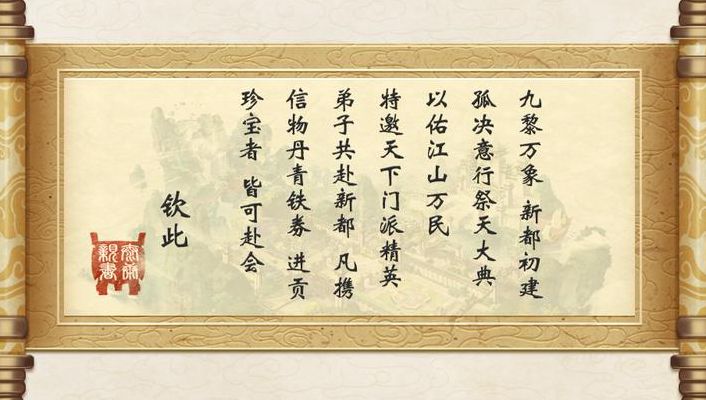 九黎万象 新都初建
孤决意行祭天大典
以佑江山万民
特邀天下门派精英
弟子共赴新都 凡携
信物丹青铁券 进贡
珍宝者 皆可赴会
钦此
亲书